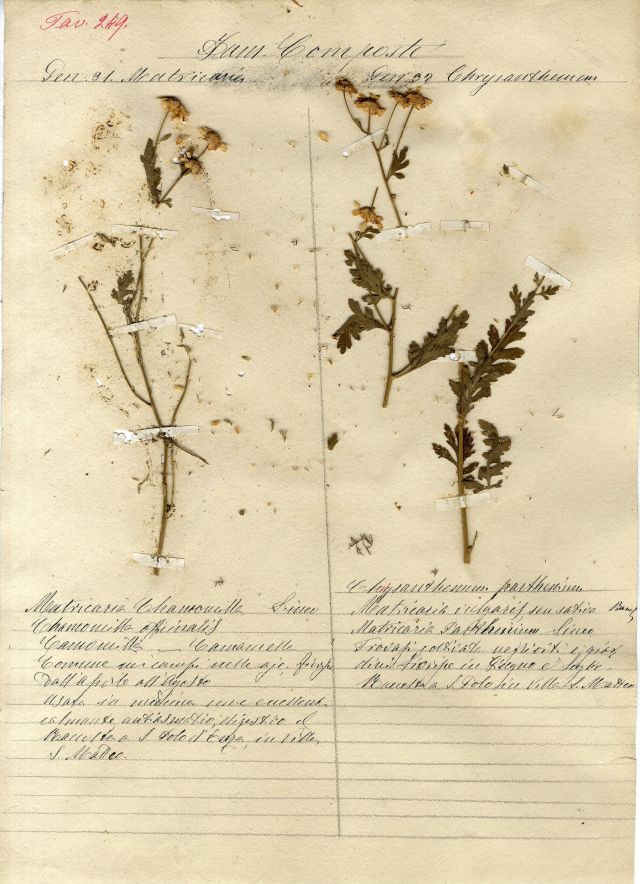 Tav. 249.
Fam. Composte
Gen. 31. Matricaria
Gen. 32 Chrysanthemum
Matricaria Chamomilla Lineo
Chamomilla officinalis
Camomilla — Camamella
Comune nei campi nelle aje,
dall'aprile all'agosto
Usata in medicina come
calmante, antiasmatico, digestivo
Raccolta a S. Polo d'Enza, in villa
S. Matteo.
Chrysanthemum parthenium
Matricaria vulgaris seu sativa
Matricaria Parthenium Lineo
Trovasi coltivata negli orti e
fiorisce in Giugno e
Raccolta a S. Polo in Villa S. Matteo